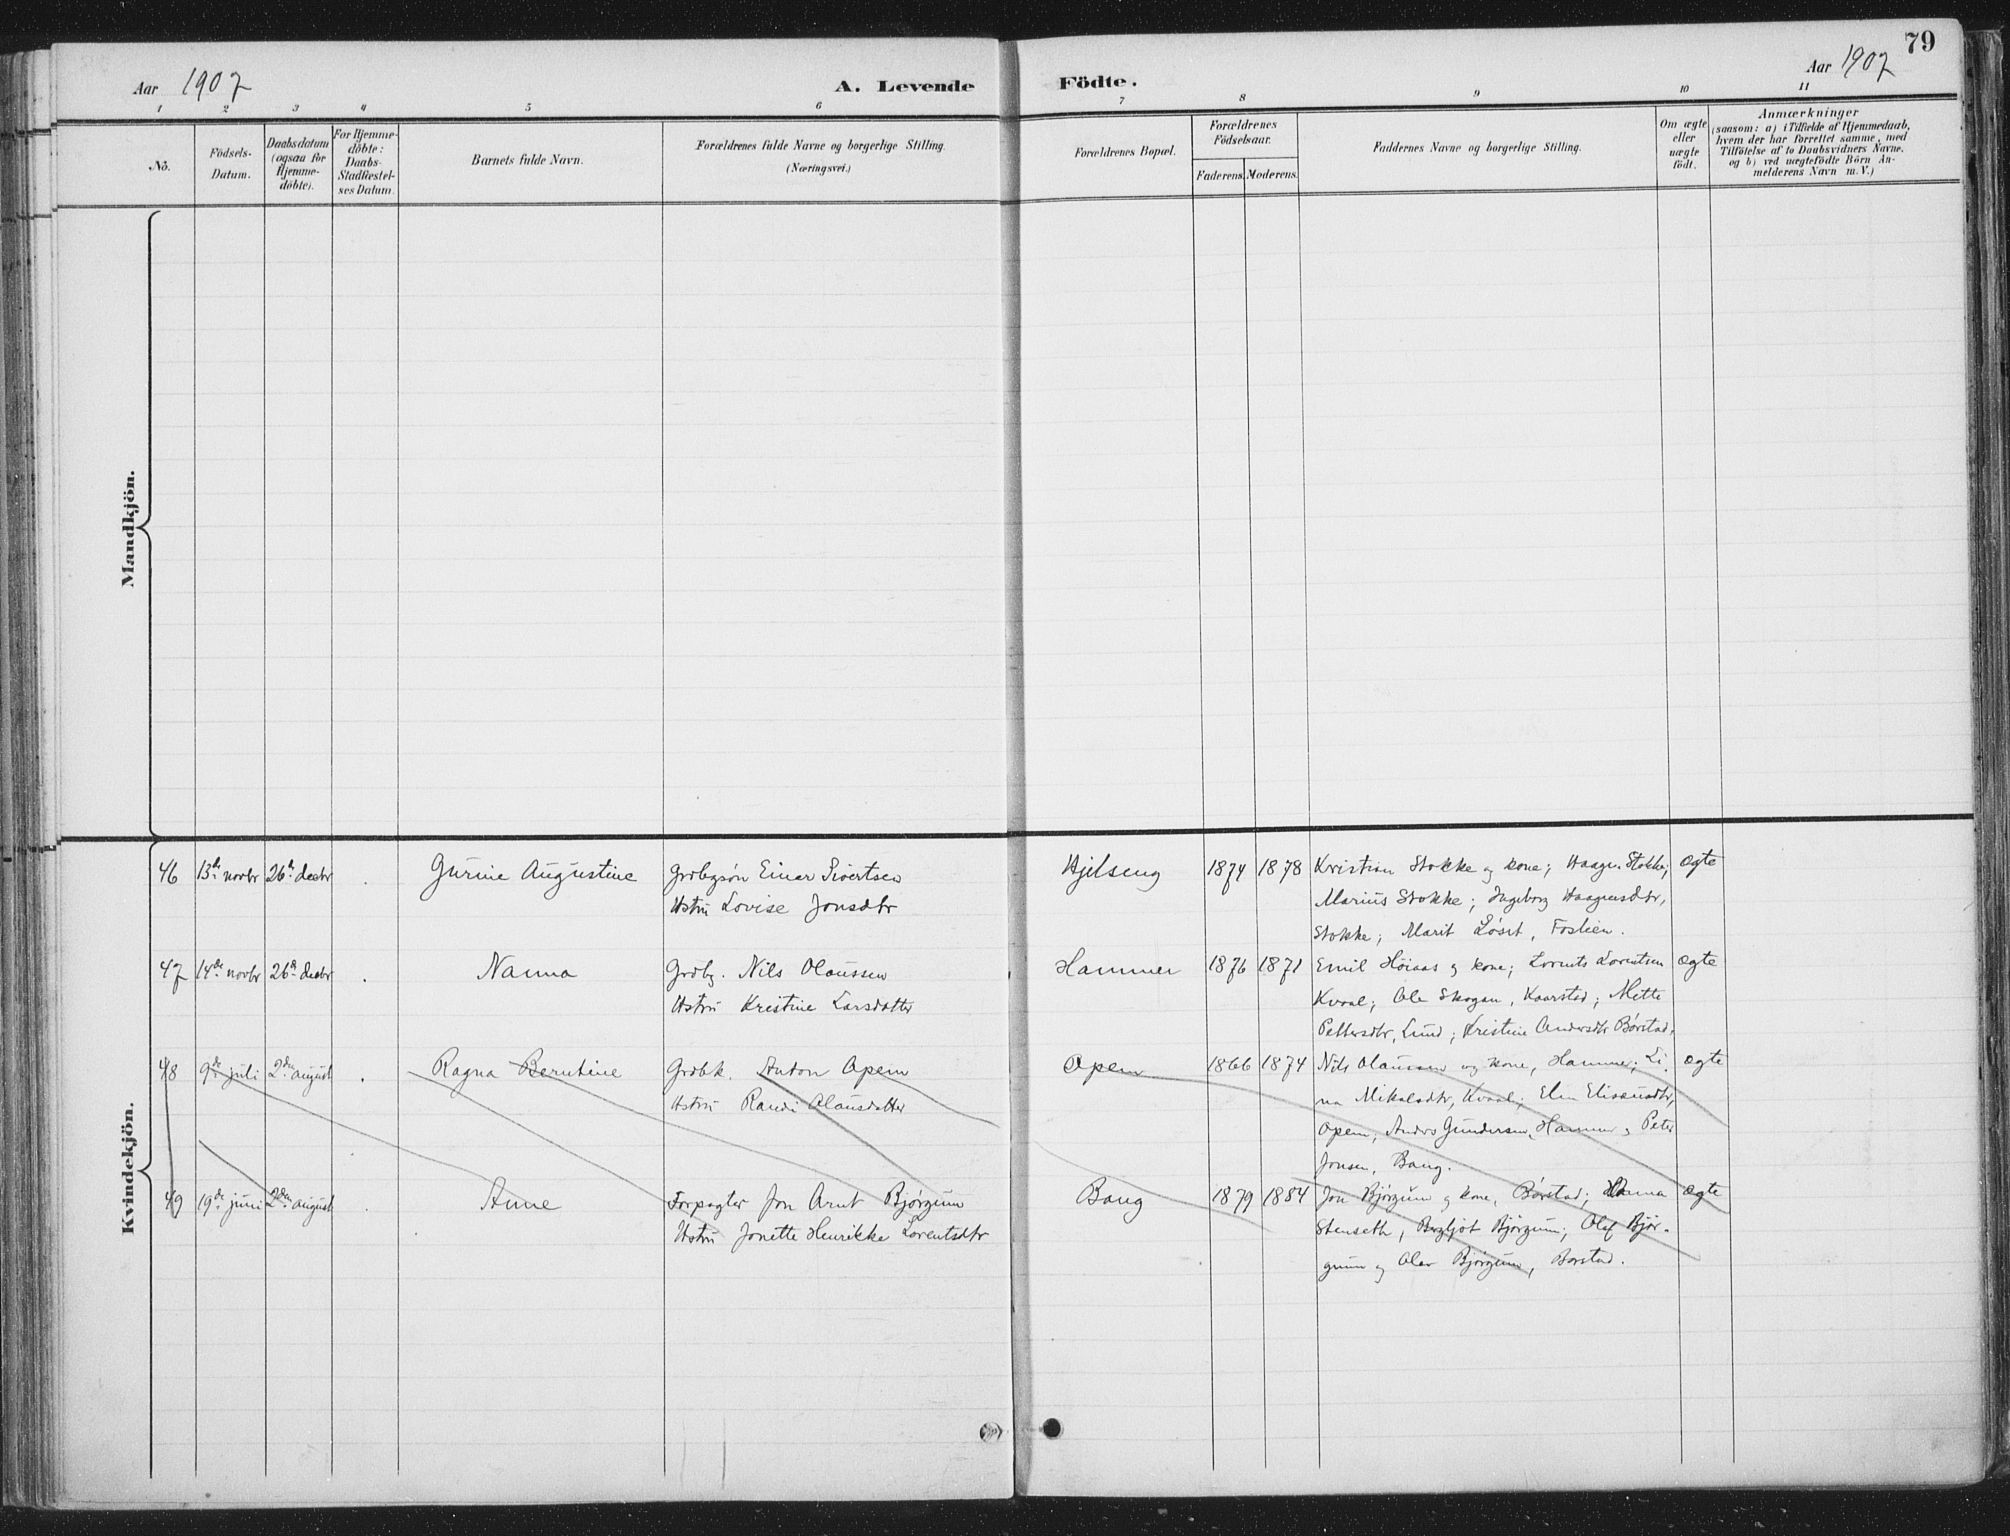 79
Aar 1907
A. Levende Födte.
Aar 1907
1 2 3 4 5 6 7 8 9 10 11
No.
Födsels-
Datum.
Daabsdatum
(ogsaa for
Hjemme-
döbte).
For Hjemme-
döbte:
Daabs-
Stadfæstel-
ses Datum.
Barnets fulde Navn.
Forældrenes fulde Navne og borgerlige Stilling.
(Næringsvei.)
Forældrenes Bopæl.
Forældrenes
Födselsaar.
Faderens. Moderens.
Faddernes Navne og borgerlige Stilling.
Om ægte
eller
uægte
födt.
Anmærkninger
(saasom: a) i Tilfælde af Hjemmedaab,
hvem der har forrettet samme, med
Tilföielse af to Daabsvidners Navne.
og b) ved uægtefödte Börn An-
melderens Navn m.V.)
Mandkjön.
Kvindekjön.
46 13de novbr 26de decbr Gurine Augustine Grdbgsøn Einar Sivertsen Hjelseng 1874 1878 Kristian Stokke og kone; Haagen Stokke; ægte
Hstru Lovise Jonsdtr Marius Stokke; Ingeborg Haagensdtr,
Stokke; Marit Løset, Foslien.
47 14de novbr 26de decbr Nanna Grdbg. Nils Olaussen Hammer 1876 1871 Emil Høiaas og kone; Lorents Lorentsen ægte
Hstru Kristine Larsdatter Kvaal; Ole Skogan, Kaarstad; Mette
Pettersdtr, Lund; Kristine Andersdtr Børstad.
48 9de juli 2den august Ragna Berntine Grdbk. Anton Opem Opem 1866 1874 Nils Olaussen og kone, Hammer; Li- ægte
Hstru Randi Olausdatter na Mikalsdtr, Kvaal; Elen Eliseusdtr,
Opem; Anders Gundersen, Hammer og Peter
Jonsen, Bang.
49 19de juni 2den august Anne Forpagter Jon Arnt Bjørgum Bang 1879 1884 Jon Bjørgum og kone, Børstad; Hanna ægte
Hstru Jonette Henrikke Lorentsdtr Stenseth, Bergljot Bjørgum; Olaf Bjør-
gum og Olav Bjørgum, Borstad.